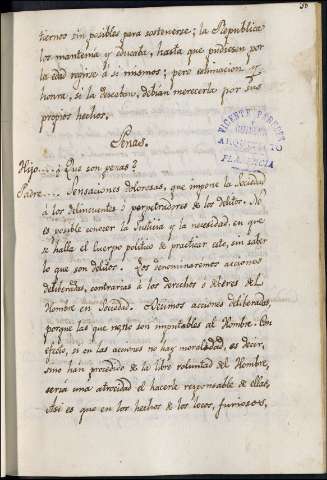 36
tiernos sin posibles para sostenerse; la Republica
los mantenia y educaba, hasta que pudiesen por
la edad regirse à si mismos; pero estimacion y
honra, si la deseaban, debian merecerla por sus
propios hechos.
Penas.
Hijo.... ¿Que son penas?
Padre.... Sensaciones dolorosas, que impone la Sociedad
à los delinquentes ò perpetradores de los delitos. No
es posible conocer la Justicia y la necesidad, en que
se halla el Cuerpo politico de practicar esto, sin saber
lo que son delitos. Los denominaremos acciones
deliberadas, contrarias à los derechos ò deberes del
Hombre en Sociedad. Decimos acciones deliberadas,
porque las que no son imputables al Hombre. Con
efecto, si en las acciones no hay moralidad, es decir,
sino han procedido de la libre voluntad del Hombre,
seria una atrocidad el hacerle responsable de ellas.
Asi es que en los hechos de los locos, furiosos,
VICENTE
ARQUITECTO